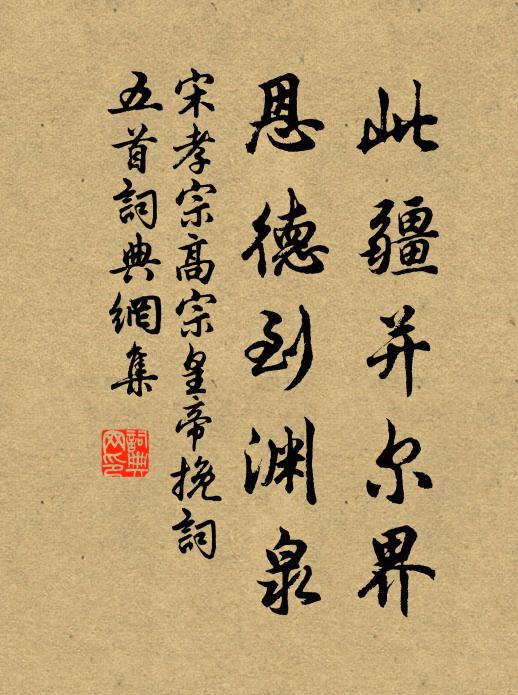 此疆并尔界
恩德到渊泉
宋孝宗高宗皇帝挽詞
五首詞典網集
詞典
网印